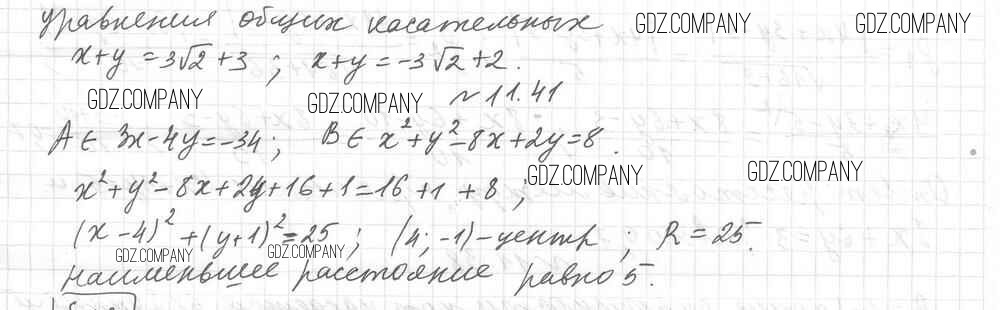 уравнения общих касательных GDZ.COMPANY GDZ.COMPANY
x+y=3√2+3; x+y=-3√2+2.
GDZ.COMPANY GDZ.COMPANY ~11.41
A∈ 3x-4y=-34; B∈ x²+y²-8x+2y=8.
x²+y²-8x+2y+16+1=16+1+8; GDZ.COMPANY GDZ.COMPANY
(x-4)²+(y+1)²=25; (4;-1)-центр; R=25.
GDZ.COMPANY GDZ.COMPANY
наименьшее расстояние равно 5.